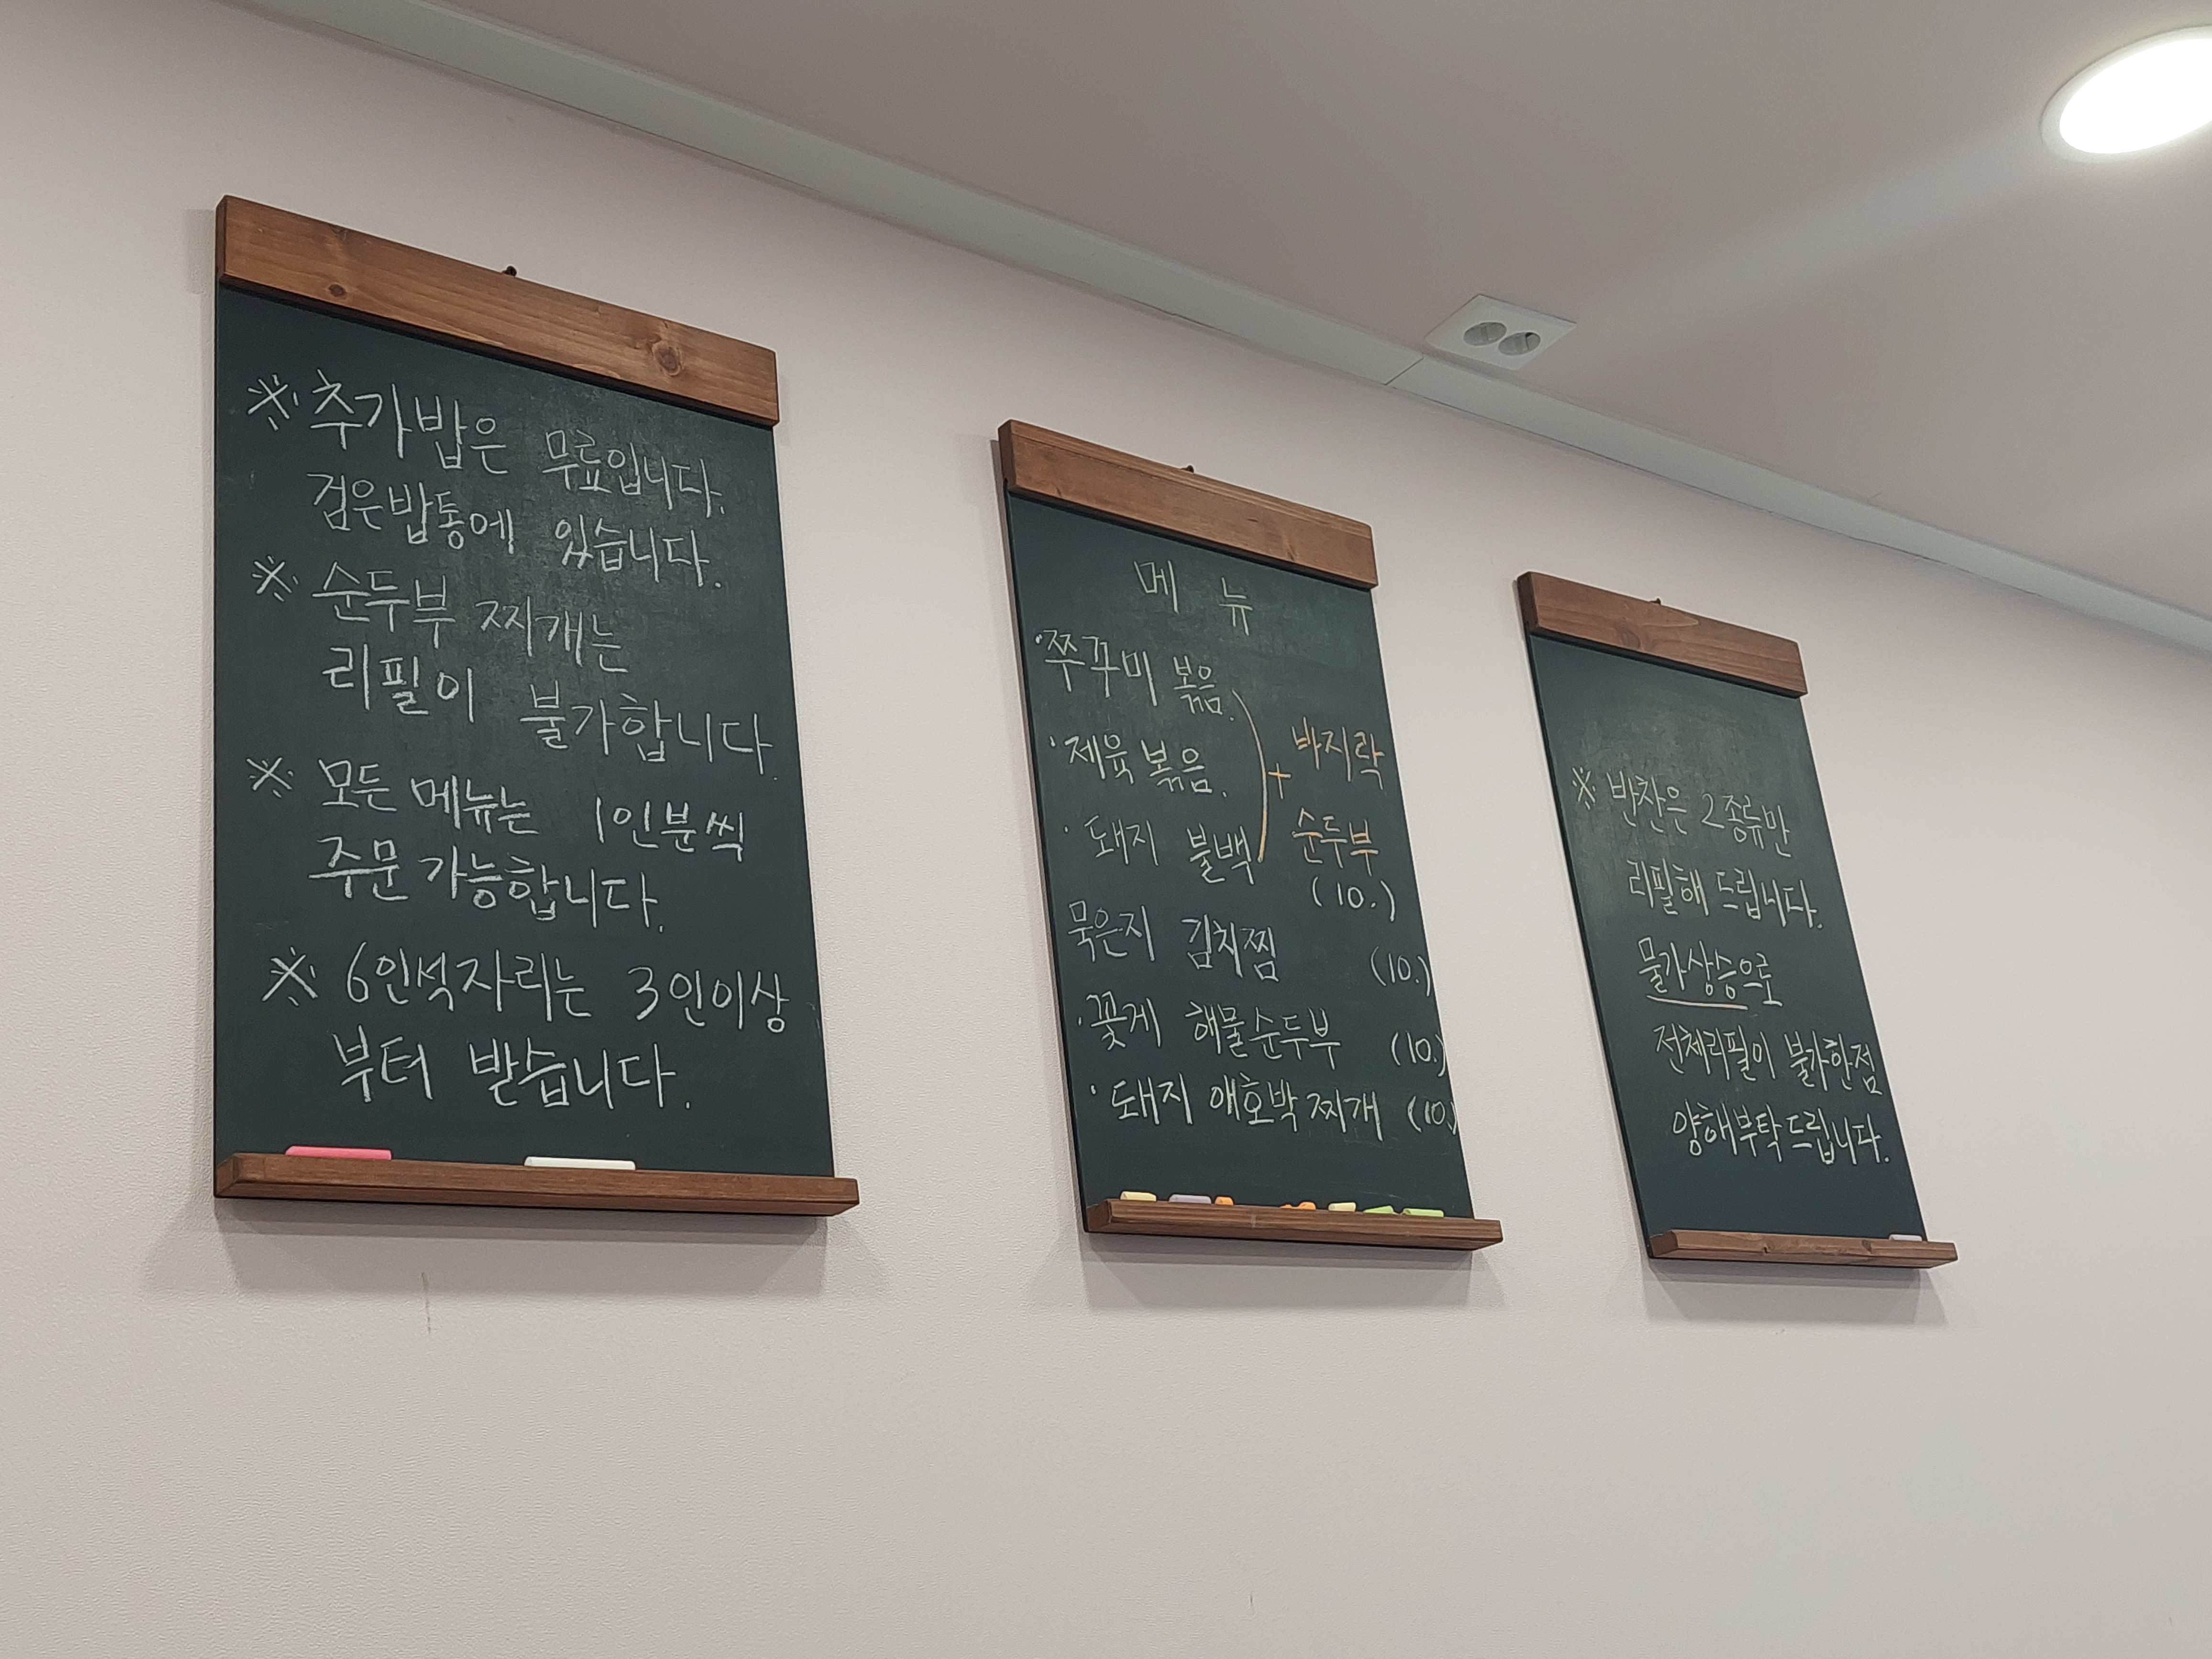 ※ 추가밥은 무료입니다.
검은밥통에 있습니다.
※ 순두부 찌개는
리필이 불가합니다.
※ 모든 메뉴는 1인분씩
주문 가능합니다.
※ 6인석자리는 3인이상
부터 받습니다.
메 뉴
·쭈꾸미 볶음.
·제육 볶음.
·돼지 불백
+ 바지락
순두부
(10.)
묵은지 김치찜 (10.)
·꽃게 해물순두부 (10.)
·돼지 애호박 찌개 (10.)
※ 반찬은 2종류만
리필해 드립니다.
물가상승으로
전체리필이 불가한점
양해부탁드립니다.